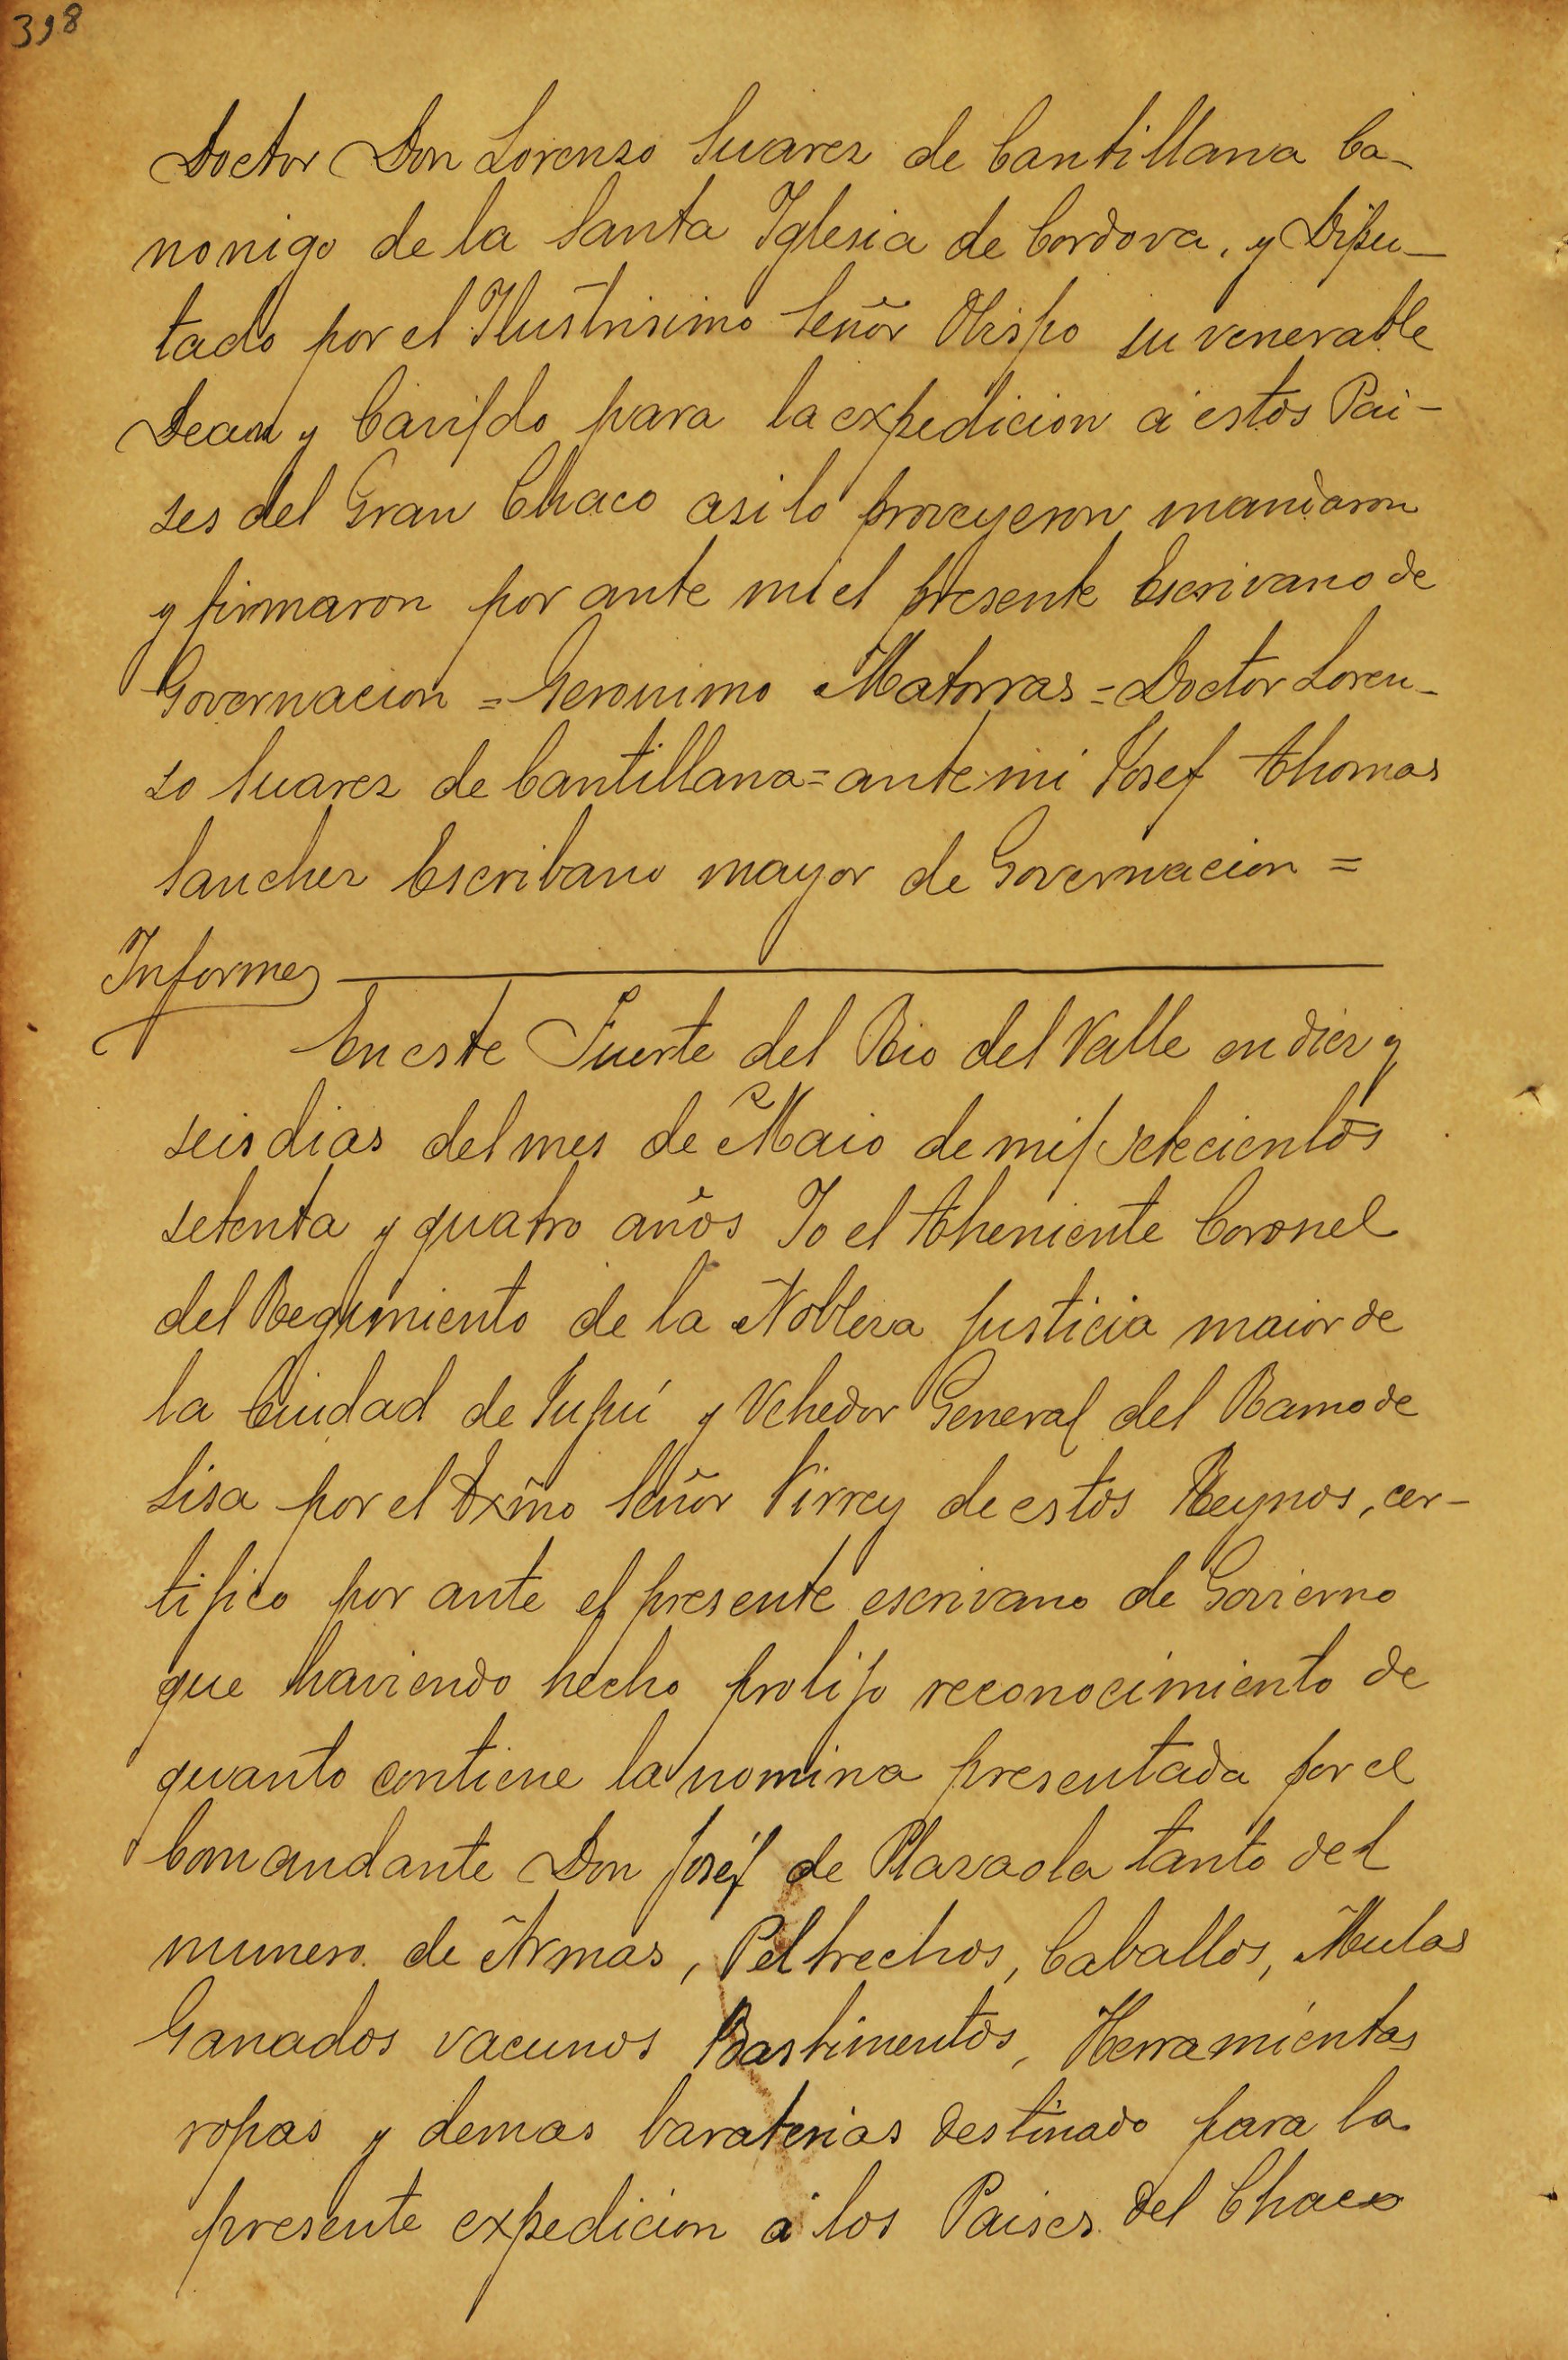 398
Doctor Don Lorenzo Suarez de Cantillana Ca-
nonigo de la Santa Iglesia de Cordova, y Dipu-
tado por el Ilustrisimo Señor Obispo su venerable
Dean y Cavildo para la expedicion á estos Pai-
ses del Gran Chaco asi lo proveyeron mandaron
y firmaron por ante mi el presente Escrivano de
Governacion = Geronimo Matorras = Doctor Loren-
zo Suarez de Cantillana = ante mi Josef Thomas
Sanchez Escribano mayor de Governacion =
Informe
En este Fuerte del Rio del Valle en diez y
seis dias del mes de Maio de mil setecientos
setenta y quatro años Yo el Theniente Coronel
del Regimiento de la Nobleza Justicia maior de
la Ciudad de Jujuí y Vehedor General del Ramo de
Sisa por el Exmõ Señor Virrey de estos Reynos, cer-
tifico por ante el presente escrivano de Govierno
que haviendo hecho prolijo reconocimiento de
quanto contiene la nomina presentada por el
Comandante Don Joséf de Plazaola tanto del
numero de Armas, Peltrechos, Caballos, Mulas
Ganados vacunos Bastimentos, Herramientas
ropas y demas baraterias destinado para la
presente expedicion á los Paises del Chaco